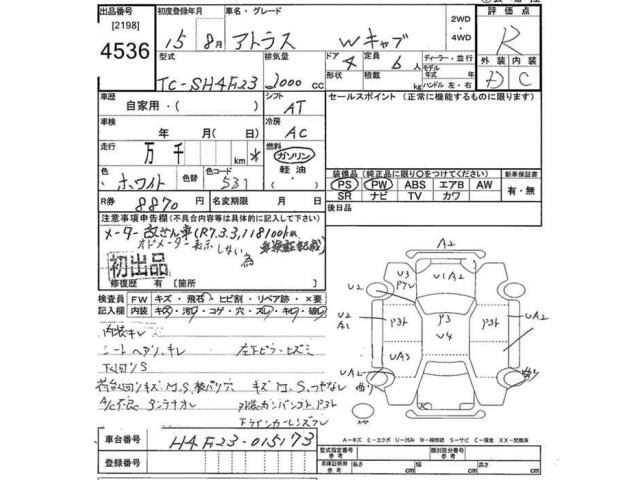 出品番号
[2198]
4536
初度登録年月
車名・グレード
15
8月
アトラス
Wキャブ
2WD
・
4WD
評価点
R
外装
内装
D
C
型式
TC-SH4F23
排気量
2000
cc
ドア
4
定員
6
人
形状
積載
kg
ディーラー・並行
モデル
年式
年
ハンドル 左・右
車歴
自家用・
シフト
AT
セールスポイント (正常に機能するものに限ります)
車検
年
月(
日)
冷房
AC
走行
万
千
km
*
燃料
ガソリン
軽油
・
色
ホワイト
色替
色コード
531
装備品 (純正品に限り○をつけてください)
PS PW ABS エアB AW
SR ナビ TV カワ
新車保証書
有・無
R券
8870
円
名変期限
月
日
後日品
注意事項申告欄(不具合内容等は具体的に記入して下さい)
メーター改ざん車(R7.3.3,118100km
オドメーター表示しない為
車検証記載)
初出品
修復歴 有 [箇所
]
検査員
記入欄
FW
キズ・飛石・ヒビ割・リペア跡・×要
内装
キズ・汚レ・コゲ・穴・スレ・キレ・破レ
内装キレ
シートヘタリ、キレ
左下ピラーヒズミ
下回りS
A/C不良
A2
U3
U1A2
U2
U2
A1
P3ト
P3
U4
P3ト
UA2
UA3
UA2
曲り
車台番号
H4F23-015173
登録番号
A－キズ E－エクボ U－凹み W－補修跡 S－サビ C－腐食 XX－交換済
型式指定番号
参考
類別区分番号
参考
車庫証明用
参考
長さ
cm
幅
cm
高さ
cm